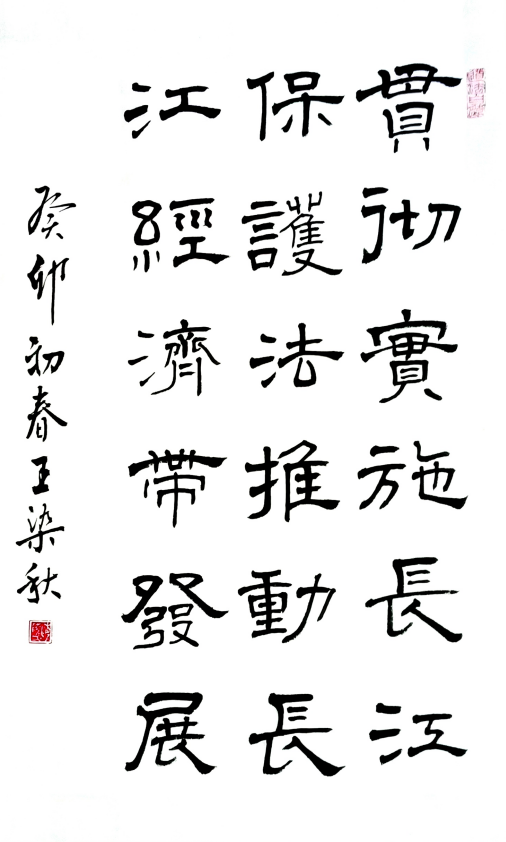 貫彻實施長江
保護法推動長
江經濟帶發展
癸卯初春王染秋